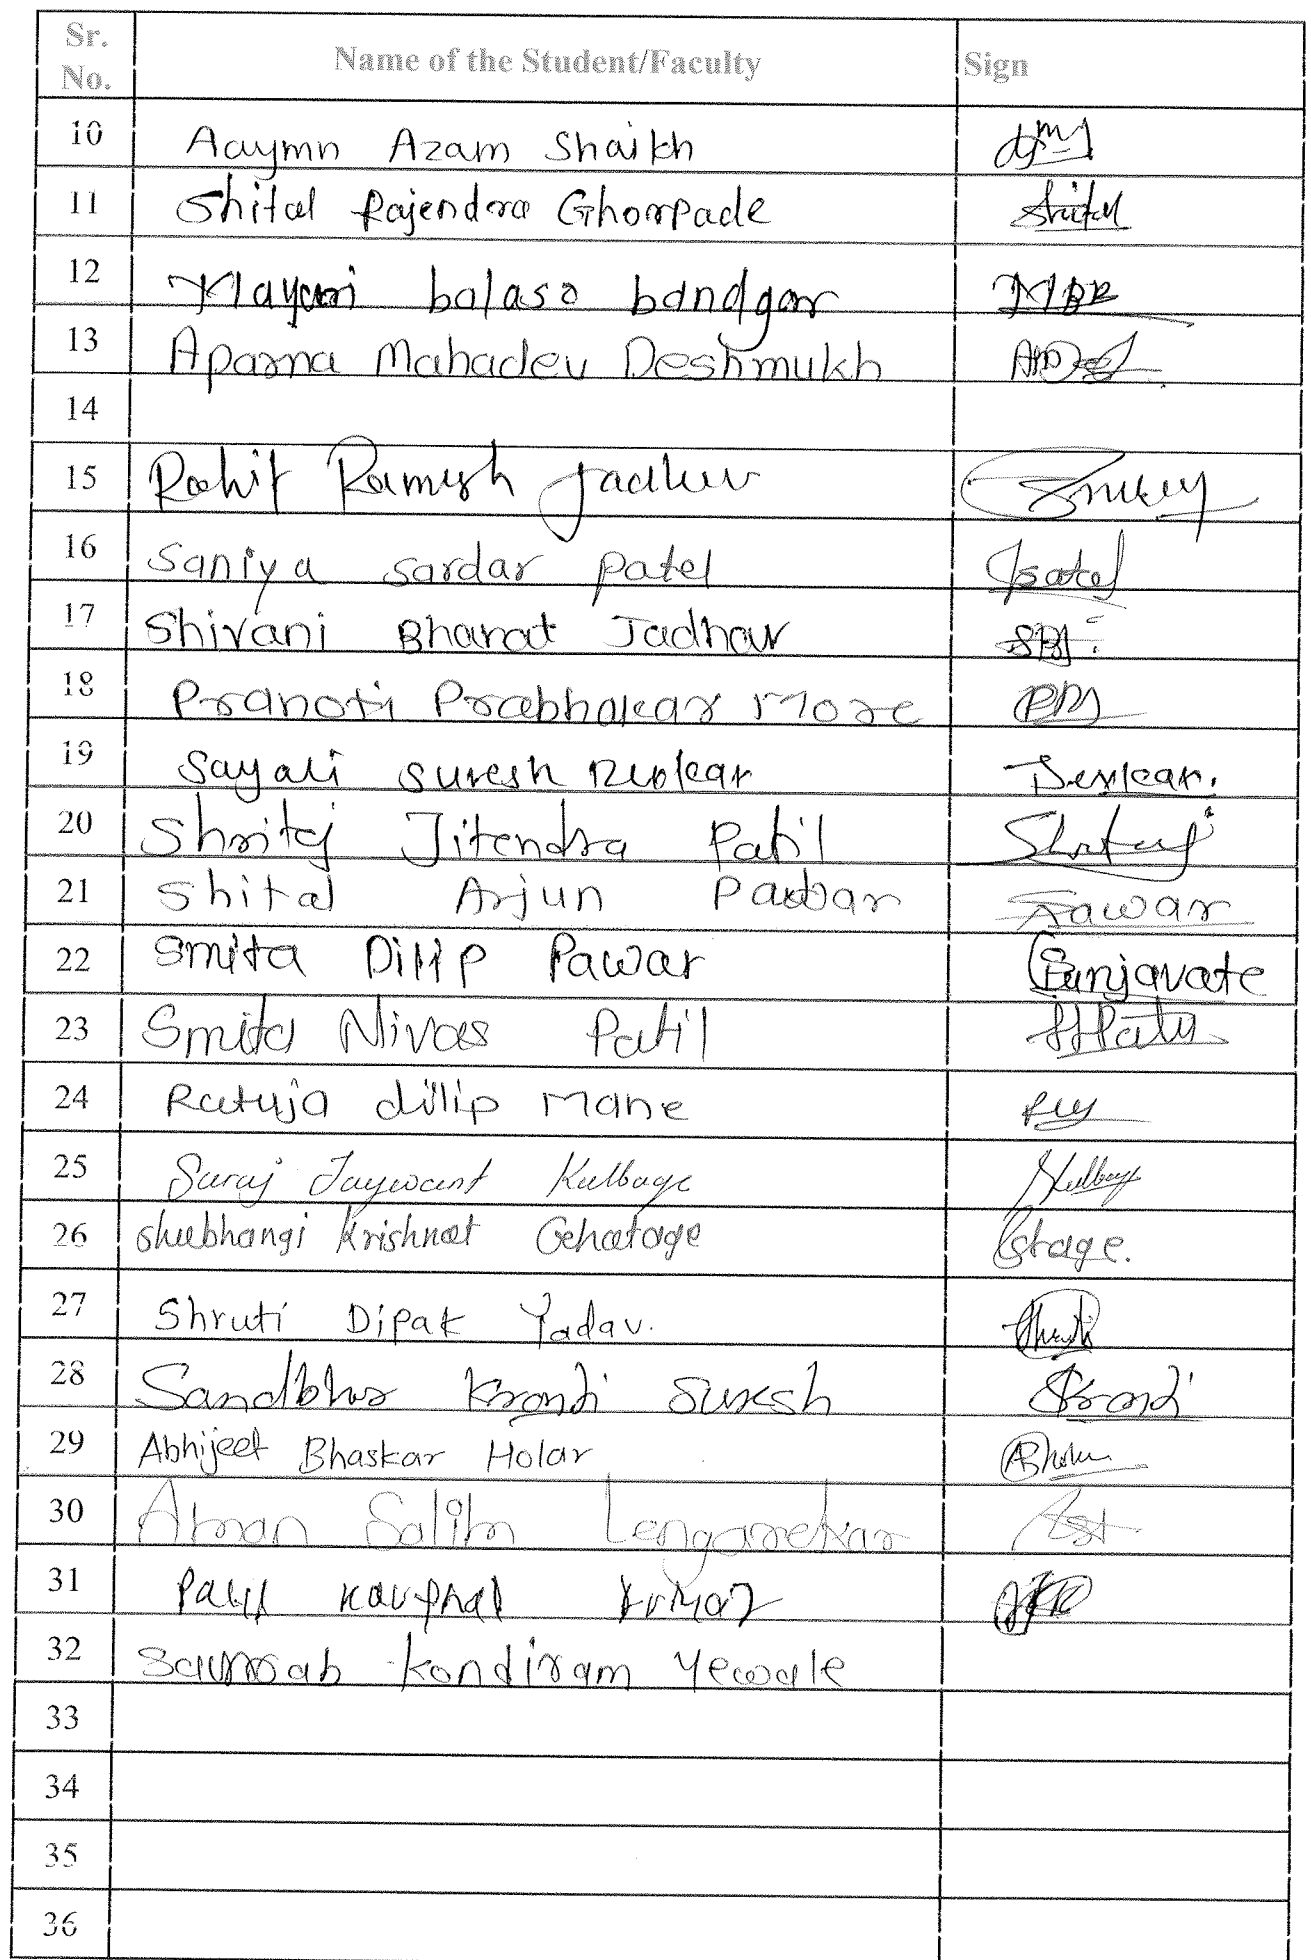 Sr. No. Name of the Student/Faculty Sign
10 Aaymn Azam Shaikh
11 Shital Rajendra Ghorpade Shital
12 Mayuri balaso bandgar MBB
13 Aparna Mahadev Deshmukh
14
15 Rohit Ramesh Jadhav
16 Saniya sardar patel Patel
17 Shivani Bharat Jadhav SBJ
18 Pranoti Prabhakar More PPM
19 Sayali suresh
20 Shritej Jitendra Patil Shritej
21 Shital Arjun Pawar Pawar
22 Smita Dilip Pawar
23 Smita Nivas Patil
24 Rutuja dilip Mane
25 Suraj Jaywant Kulbage Kulbage
26 Shubhangi Krishnat Ghatage
27 Shruti Dipak Yadav. Shruti
28 Kranti Suresh Kranti
29 Abhijeet Bhaskar Holar
30 Aman Salim Lengarekar
31 Patil kumar
32 Saurab Kondiram Yewale
33
34
35
36